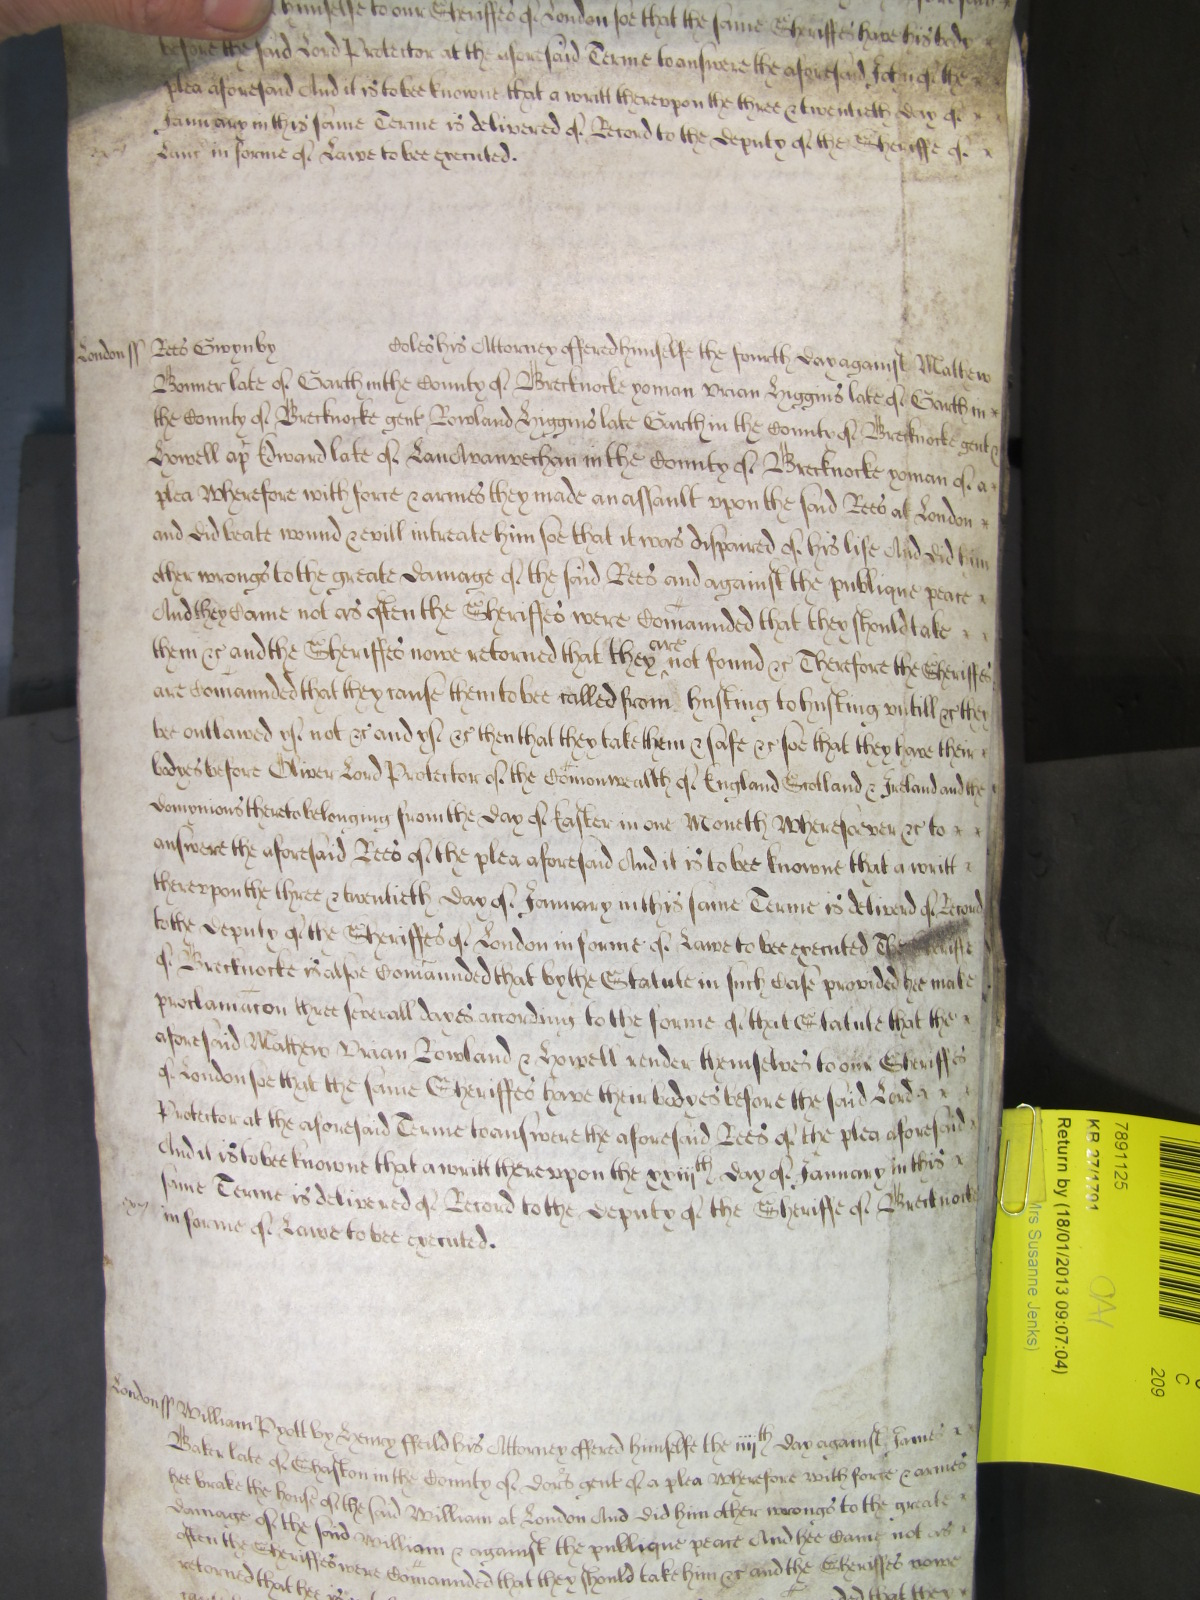 himselfe to our Sheriffes of London soe that the same Sheriffes have his body
before the said Lord Protector at the aforesaid Terme to answere the aforesaid John of the
plea aforesaid And it is to bee knowne that a writt thereupon the three & twentieth day of
January in this same Terme is delivered of Record to the deputy of the Sheriffe of
Lanc in forme of Lawe to bee executed.
London ss Rees Gwyn by Coles his Attorney offered himselfe the fourth day against Mathew
Bonner late of Garth in the County of Brecknocke yoman Urian Higgins late of Garth in
the County of Brecknocke gent Rowland Higgins late Garth in the County of Brecknocke gent &
Howell ap Edward late of Lanavanvechan in the County of Brecknocke yoman of a
plea Wherefore with force & armes they made an assault upon the said Rees at London
and did beate wound & evill intreate him soe that it was dispaired of his life And did him
other wrongs to the greate damage of the said Rees and against the publique peace
And they Came not as often the Sheriffes were Comaunded that they should take
them &c and the Sheriffes nowe retorned that they are not found &c Therefore the Sheriffes
are Comaunded that they cause them to bee called from husting to husting untill &c they
bee outlawed yf not &c and yf &c then that they take them & safe &c soe that they have their
bodyes before Oliver Lord Protector of the Comonwealth of England Scotland & Ireland and the
dominions thereto belonging from the day of Easter in one Moneth Wheresoever &c to
answere the aforesaid Rees of the plea aforesaid And it is to bee knowne that a writt
thereupon the three & twentieth day of January in this same Terme is deliverd of Record
to the deputy of the Sheriffes of London in forme of Lawe to bee executed The Sheriffe
of Brecknocke is alsoe Comaunded that by the Statute in such Case provided hee make
proclamacon three severall dayes according to the forme of that Statute that the
aforesaid Mathew Urian Rowland & Howell render themselves to our Sheriffes
of London soe that the same Sheriffes have their bodyes before the said Lord
Protector at the aforesaid Terme to answere the aforesaid Rees of the plea aforesaid
And it is to bee knowne that a writt thereupon the xxiijth day of January in this
same Terme is delivered of Record to the deputy of the Sheriffe of Brecknocke
in forme of Lawe to bee executed.
London ss William Pyott by Henry ffeild his Attorney offered himselfe the iiijth day against James
Baker late of Shaston in the County of Dors gent of a plea Wherefore with force & armes
hee brake the house of the said William at London And did him other wrongs to the greate
damage of the said William & against the publique peace And hee Came not as
often the Sheriffes were Comaunded that they should take him &c and the Sheriffes nowe
retorned that hee is
7891125
KB 27/1701
Return by (18/01/2013 09:07:04)
Mrs Susanne Jenks)
C
209